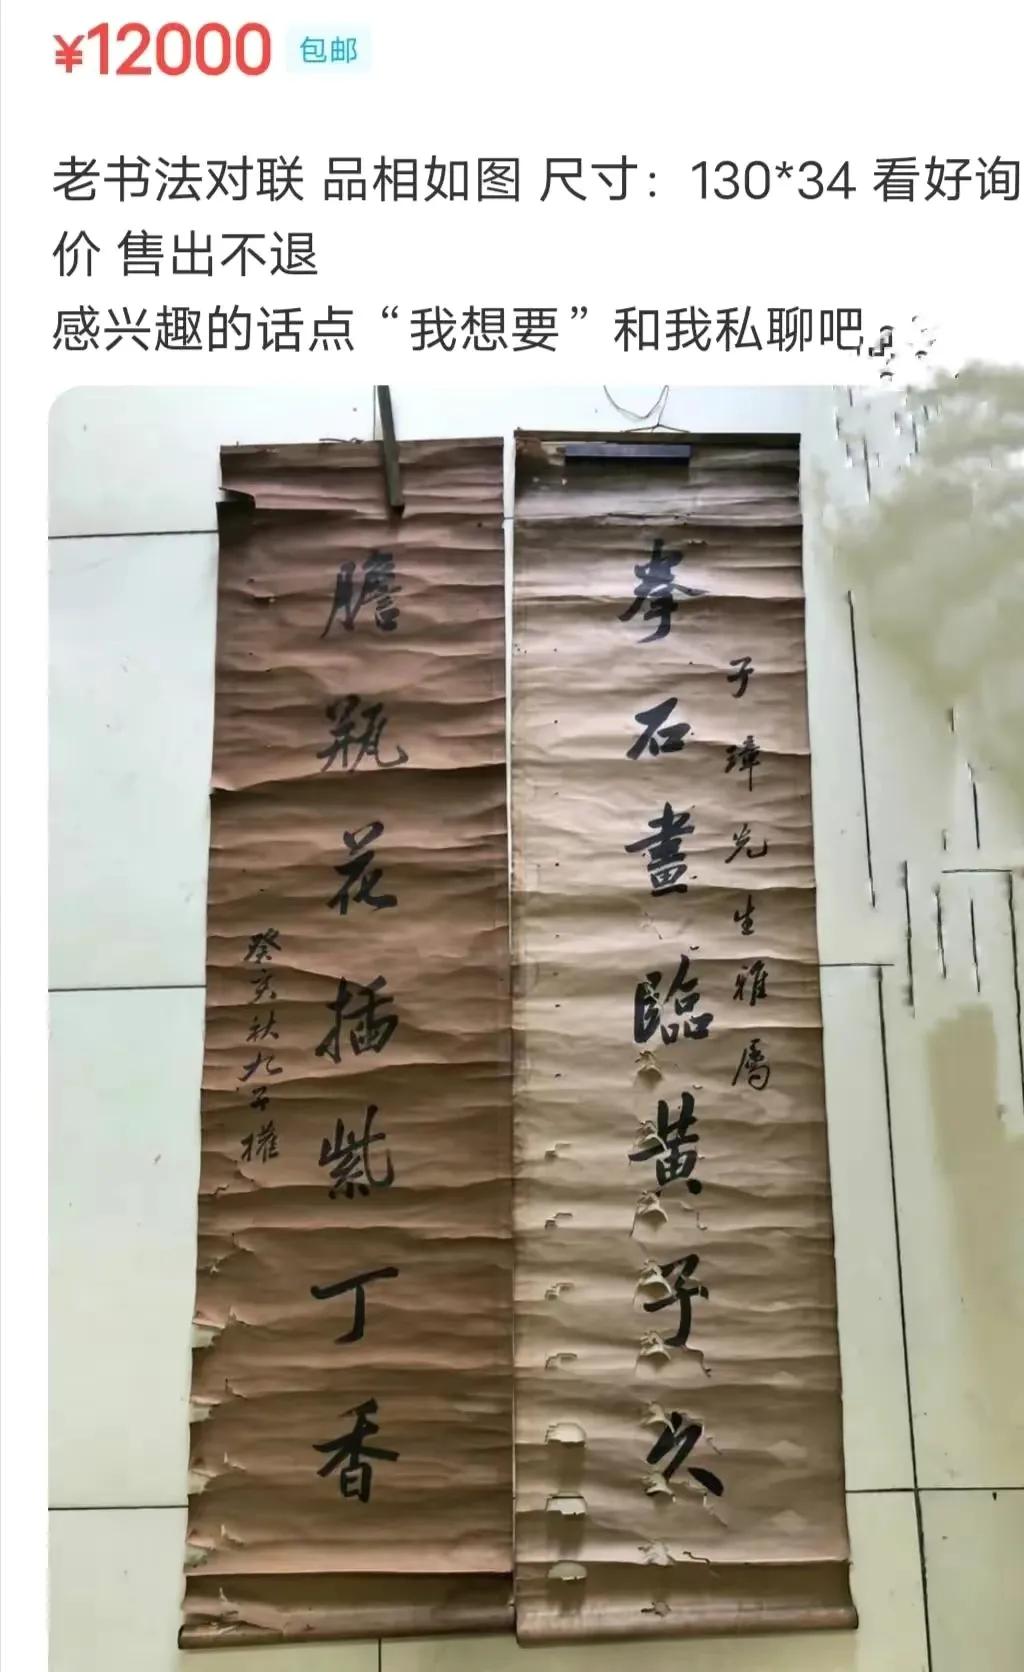 ¥12000 包邮
老书法对联 品相如图 尺寸：130*34 看好询
价 售出不退
感兴趣的话点“我想要”和我私聊吧。
拳石畫臨黃子久
子璋先生雅屬
膽瓶花插紫丁香
癸亥秋九子㩲